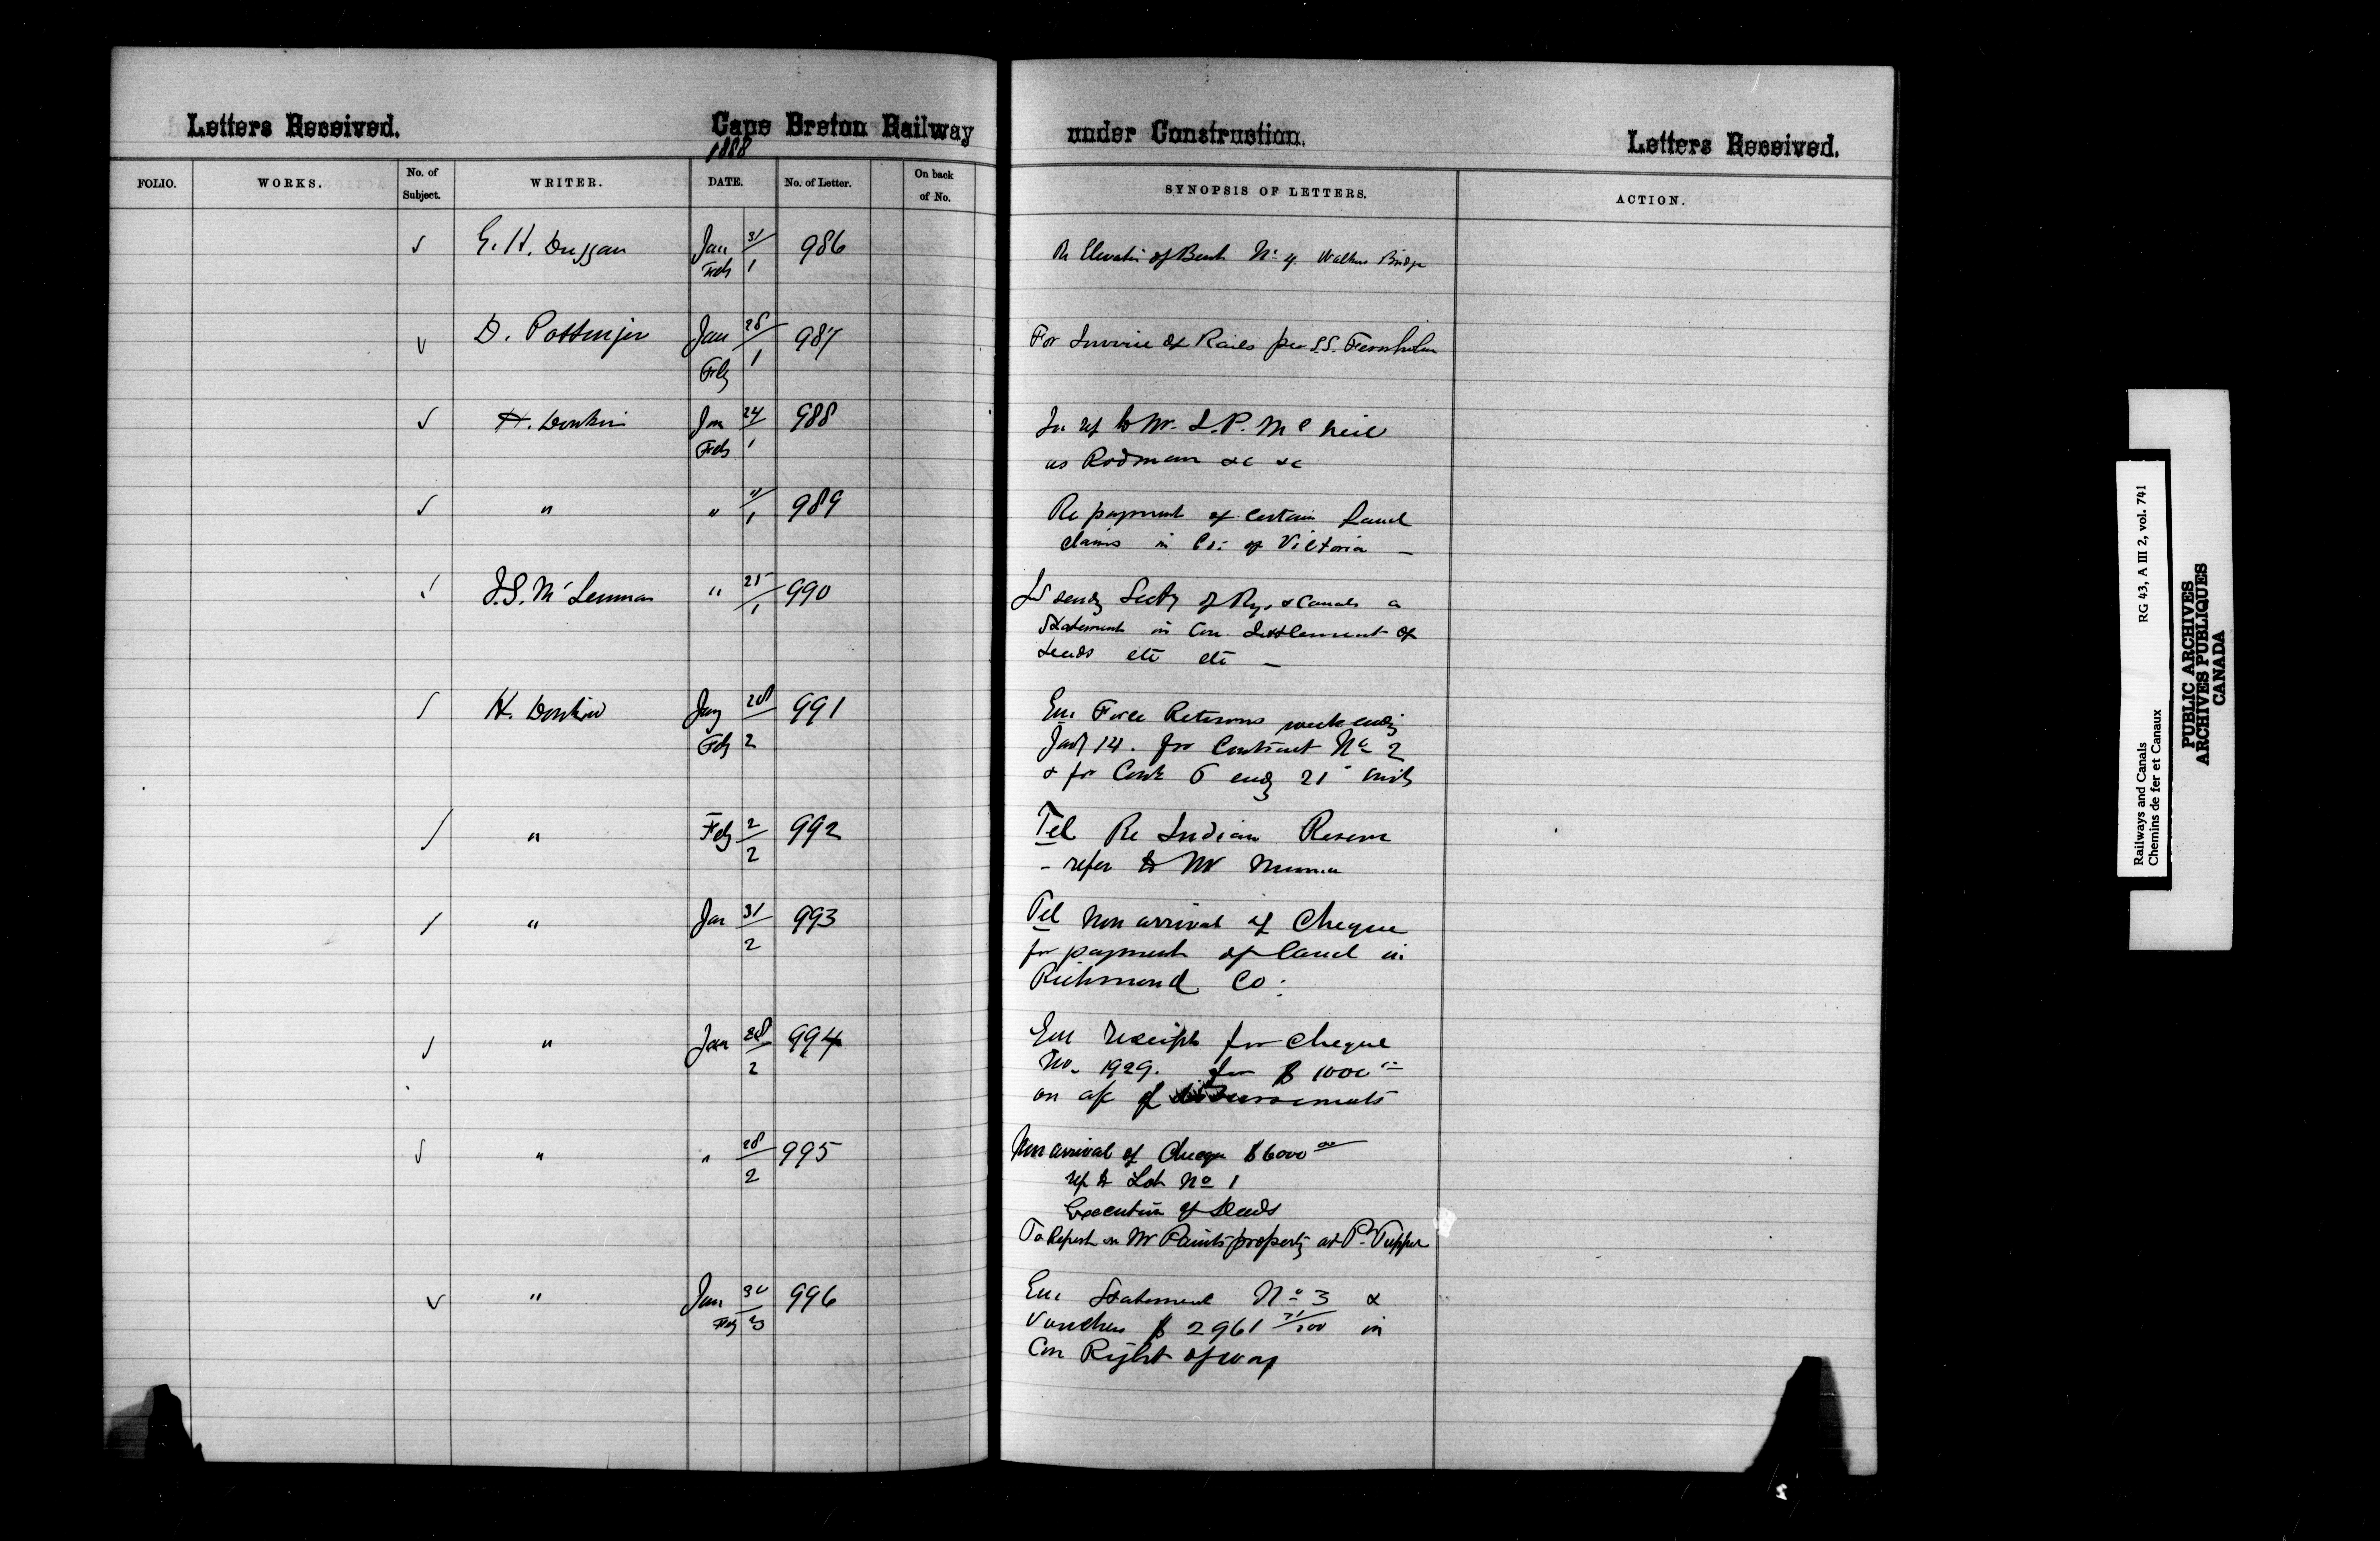 Letters Received.
Cape Breton Railway
under Construction.
Letters Received.
1888
FOLIO.
WORKS.
No. of
Subject.
WRITER.
DATE.
No. of Letter.
On back
of No.
SYNOPSIS OF LETTERS.
ACTION.
G. H. Duggan Jan 31 986 Re Elevation of Bent No 4 Bridge
Feb 1
D. Pottinger Jan 28 987 For Invoice of Rails per S.S.
Feby 1
H. Donkin Jan 24 988 In ref to Mr. L.P. McNeil
Feb 1 as Rodman &c &c
" " " 989 Re payment of certain land
1 claims in Co: of Victoria —
J.S. McLennan " 25 990 sendg Secty of Rys & Canals a
1 Statement in Con Settlement of
deeds etc etc —
H. Donkin Jany 28 991 Enc Force Returns week endg
Feby 2 Jany 14. for Contract No 2
& for Cont 6 endg 21 inst
" Feby 2 992 Tel Re Indian Reserve
2 - refer to Mr
" Jan 31 993 Tel Non arrival of Cheque
2 for payment of land in
Richmond Co:
" Jan 28 994 Enc receipt for cheque
2 No. 1929. for $1000
on a/c of disbursements
" " 28 995 Non arrival of Cheque $6000 00
2 ref to Lot No 1
Execution of Deeds
To Report on Mr Paints property at Pt Tupper
" Jan 30 996 Enc Statement No 3 &
Feby 3 Vouchers $2961 71/100 in
Con Right of way
Railways and Canals RG 43, A III 2, vol. 741
Chemins de fer et Canaux
PUBLIC ARCHIVES
ARCHIVES PUBLIQUES
CANADA